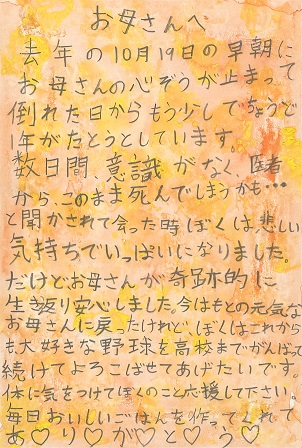 お母さんへ
去年の10月19日の早朝に
お母さんの心ぞうが止まって
倒れた日からもう少しでちょうど
1年がたとうとしています。
数日間、意識がなく、医者
から、このまま死んでしまうかも…
と聞かされて会った時ぼくは悲しい
気持ちでいっぱいになりました。
だけどお母さんが奇跡的に
生き返り安心しました。今はもとの元気な
お母さんに戻ったけれど、ぼくはこれから
も大好きな野球を高校までがんばって
続けてよろこばせてあげたいです。
体に気をつけてぼくのこと応援して下さい。
毎日おいしいごはんを作ってくれて
あ♡り♡が♡と♡う♡